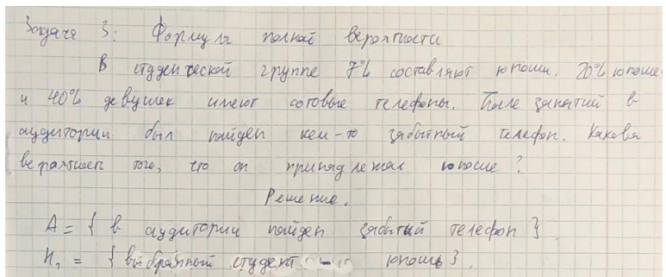 Задача 3: Формула полной вероятности
В студенческой группе 7% составляют юноши. 20% юношей
и 40% девушек имеют сотовые телефоны. После занятий в
аудитории был найден кем-то забытый телефон. Какова
вероятность того, что он принадлежал юноше?
Решение.
A = { в аудитории найден забытый телефон }
H₁ = { выбранный студент - юноша }.